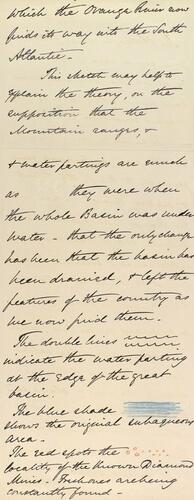 which the Orange River now
finds its way into the South
Atlantic.
This sketch may help to
explain the theory, on the
supposition that the
Mountain ranges, &
& water partings are much
as they were when
the whole Basin was under
water - that the only change
has been that the basin has
been drained, & left the
features of the country as
we now find them.
The double lines
indicate the water parting
at the edge of the great
basin.
The blue shade
shows the original subaqueous
area.
The red spots the
locality of the known Diamond
Mines. Fresh ones are being
constantly found